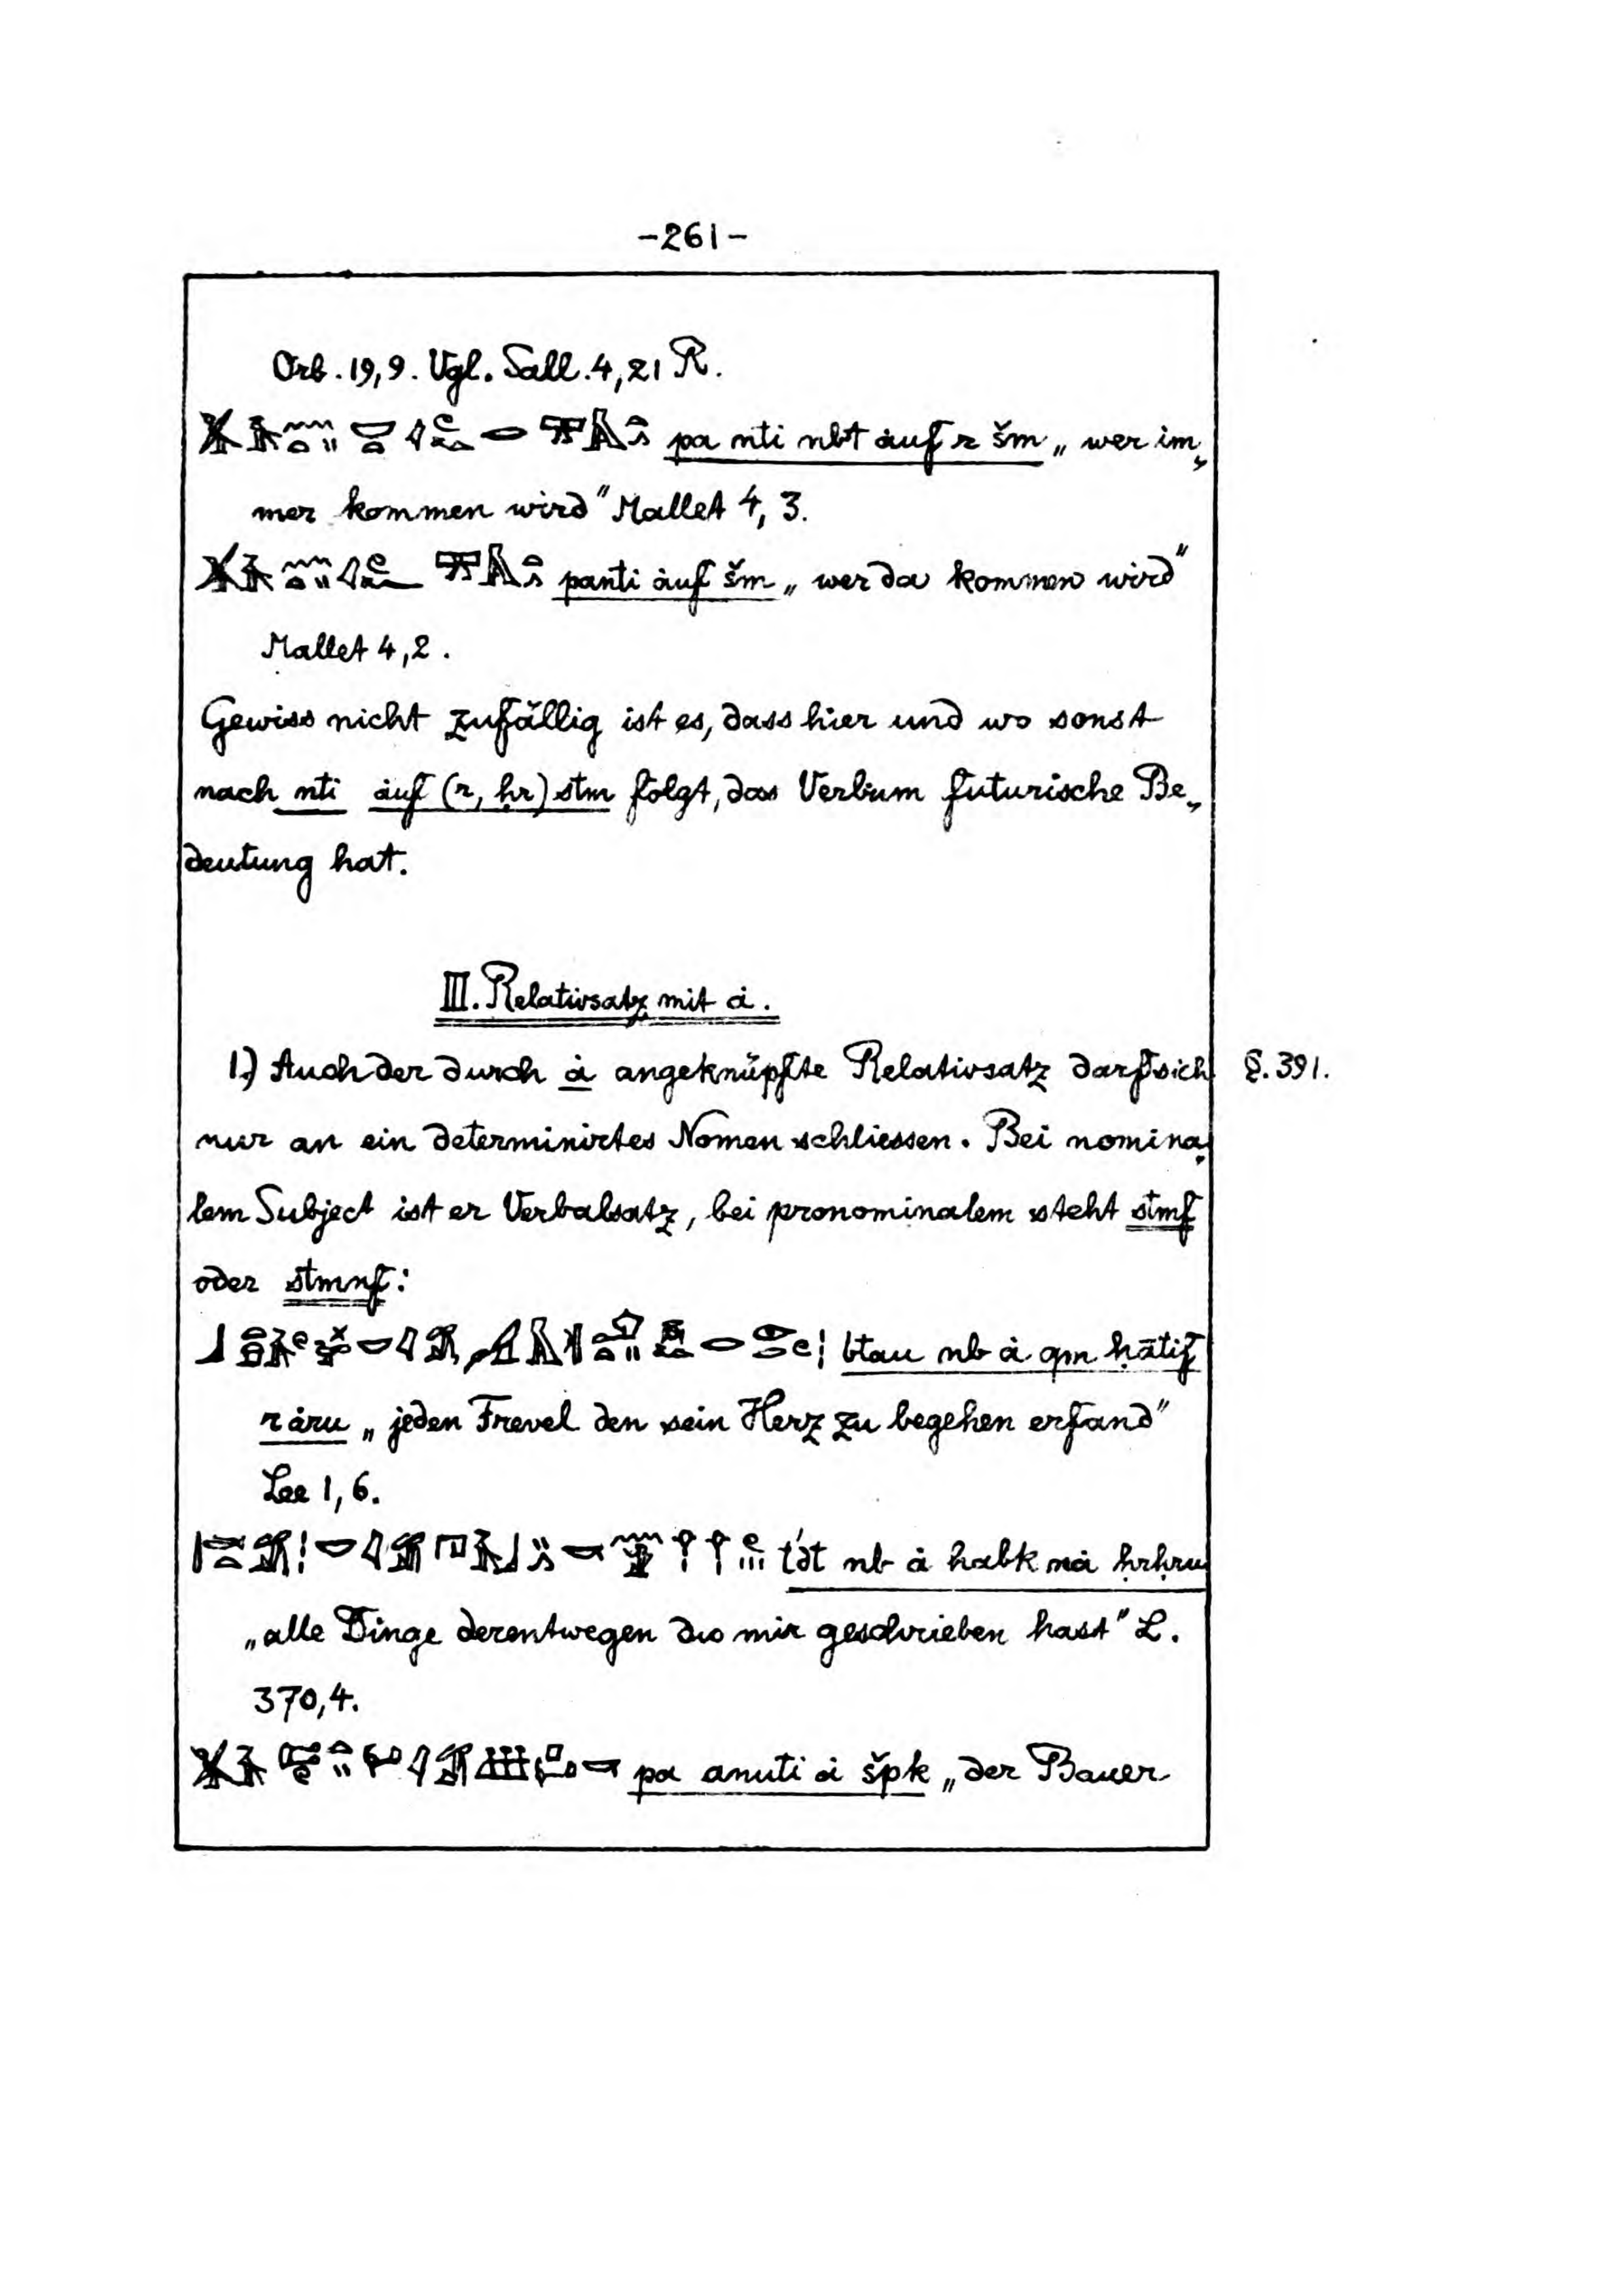 -261-
Orb. 19,9. Vgl. Sall. 4,21 R.
pa nti nbt ȧuf r šm „ wer im„
mer kommen wird" Mallet 4, 3.
panti ȧuf šm „ wer da kommen wird"
Mallet 4,2.
Gewiss nicht zufällig ist es, dass hier und wo sonst
nach nti ȧuf (r, ḥr) stm folgt, das Verbum futurische Be„
deutung hat.
III. Relativsatz mit ȧ.
1.) Auch der durch ȧ angeknüpfte Relativsatz darf sich §. 391.
nur an ein determinirtes Nomen schliessen. Bei nomina„
lem Subject ist er Verbalsatz, bei pronominalem steht stmf
oder stmnf:
btau nb ȧ qm ḥātif
r ȧru „ jeden Frevel den sein Herz zu begehen erfand"
Lee 1, 6.
nb ȧ habk nȧ ḥrḥru
„alle Dinge derentwegen du mir geschrieben hast" L.
370,4.
pa anuti ȧ špk „der Bauer